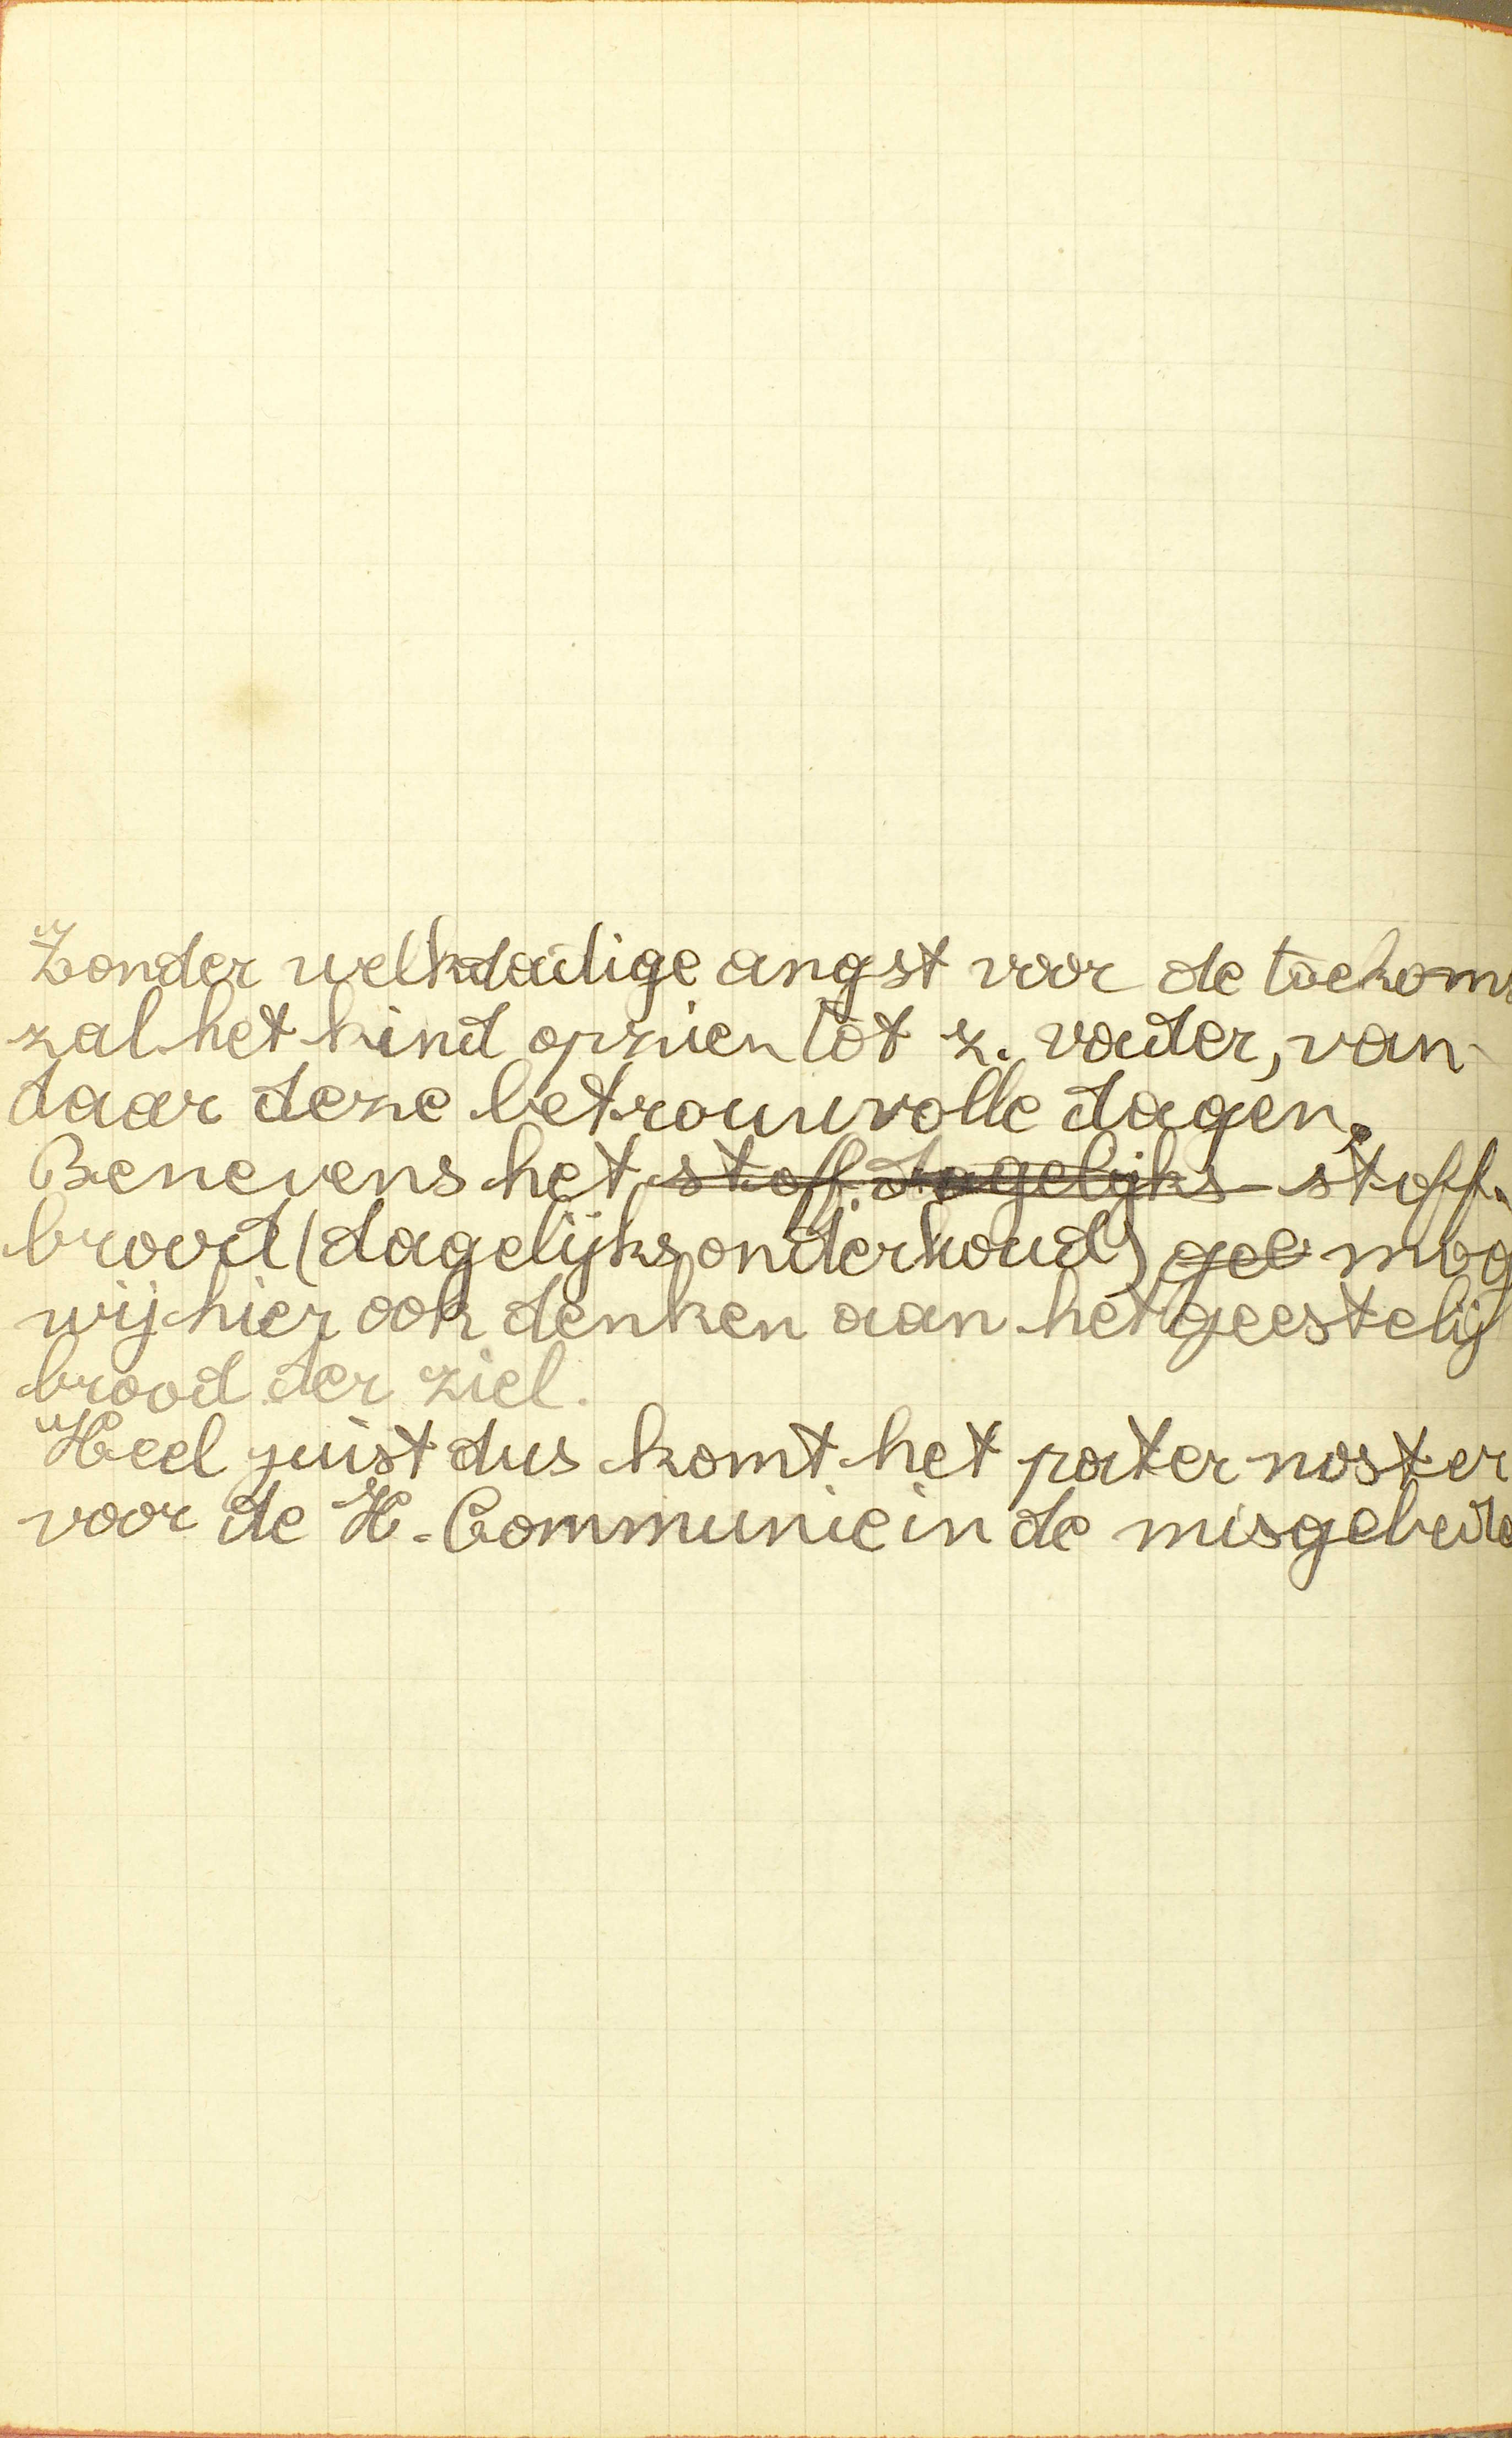 Zonder welkdadige angst voor de toekoms
zal het kind opzien tot z. vader, van
daar deze betrouwvolle dagen.
Benevens het stoff. dagelijks stoff.
brood (dagelijks onderhoud) gee mog
wij hier ook denken aan het geestelij
brood der ziel.
Heel juist dus komt het pater noster
voor de H. Communie in de misgebede